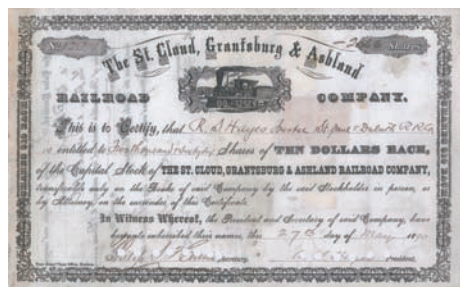 Shares
The St. Cloud, Grantsburg & Ashland
RAILROAD COMPANY.
This is to Certify, that R. S. Hayes
is entitled to Shares of TEN DOLLARS EACH,
of the Capital Stock of THE ST. CLOUD, GRANTSBURG & ASHLAND RAILROAD COMPANY,
transferable only on the Books of said Company by the said Stockholder in person, or
by Attorney, on the surrender of this Certificate.
In Witness Whereof, the President and Secretary of said Company, have
hereunto subscribed their names, this 27th day of May
Secretary. President.